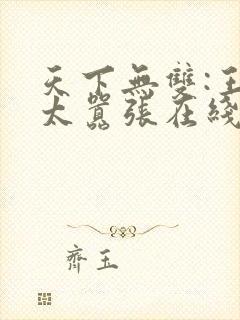 天下無雙:王
太囂張在綫
齊玉